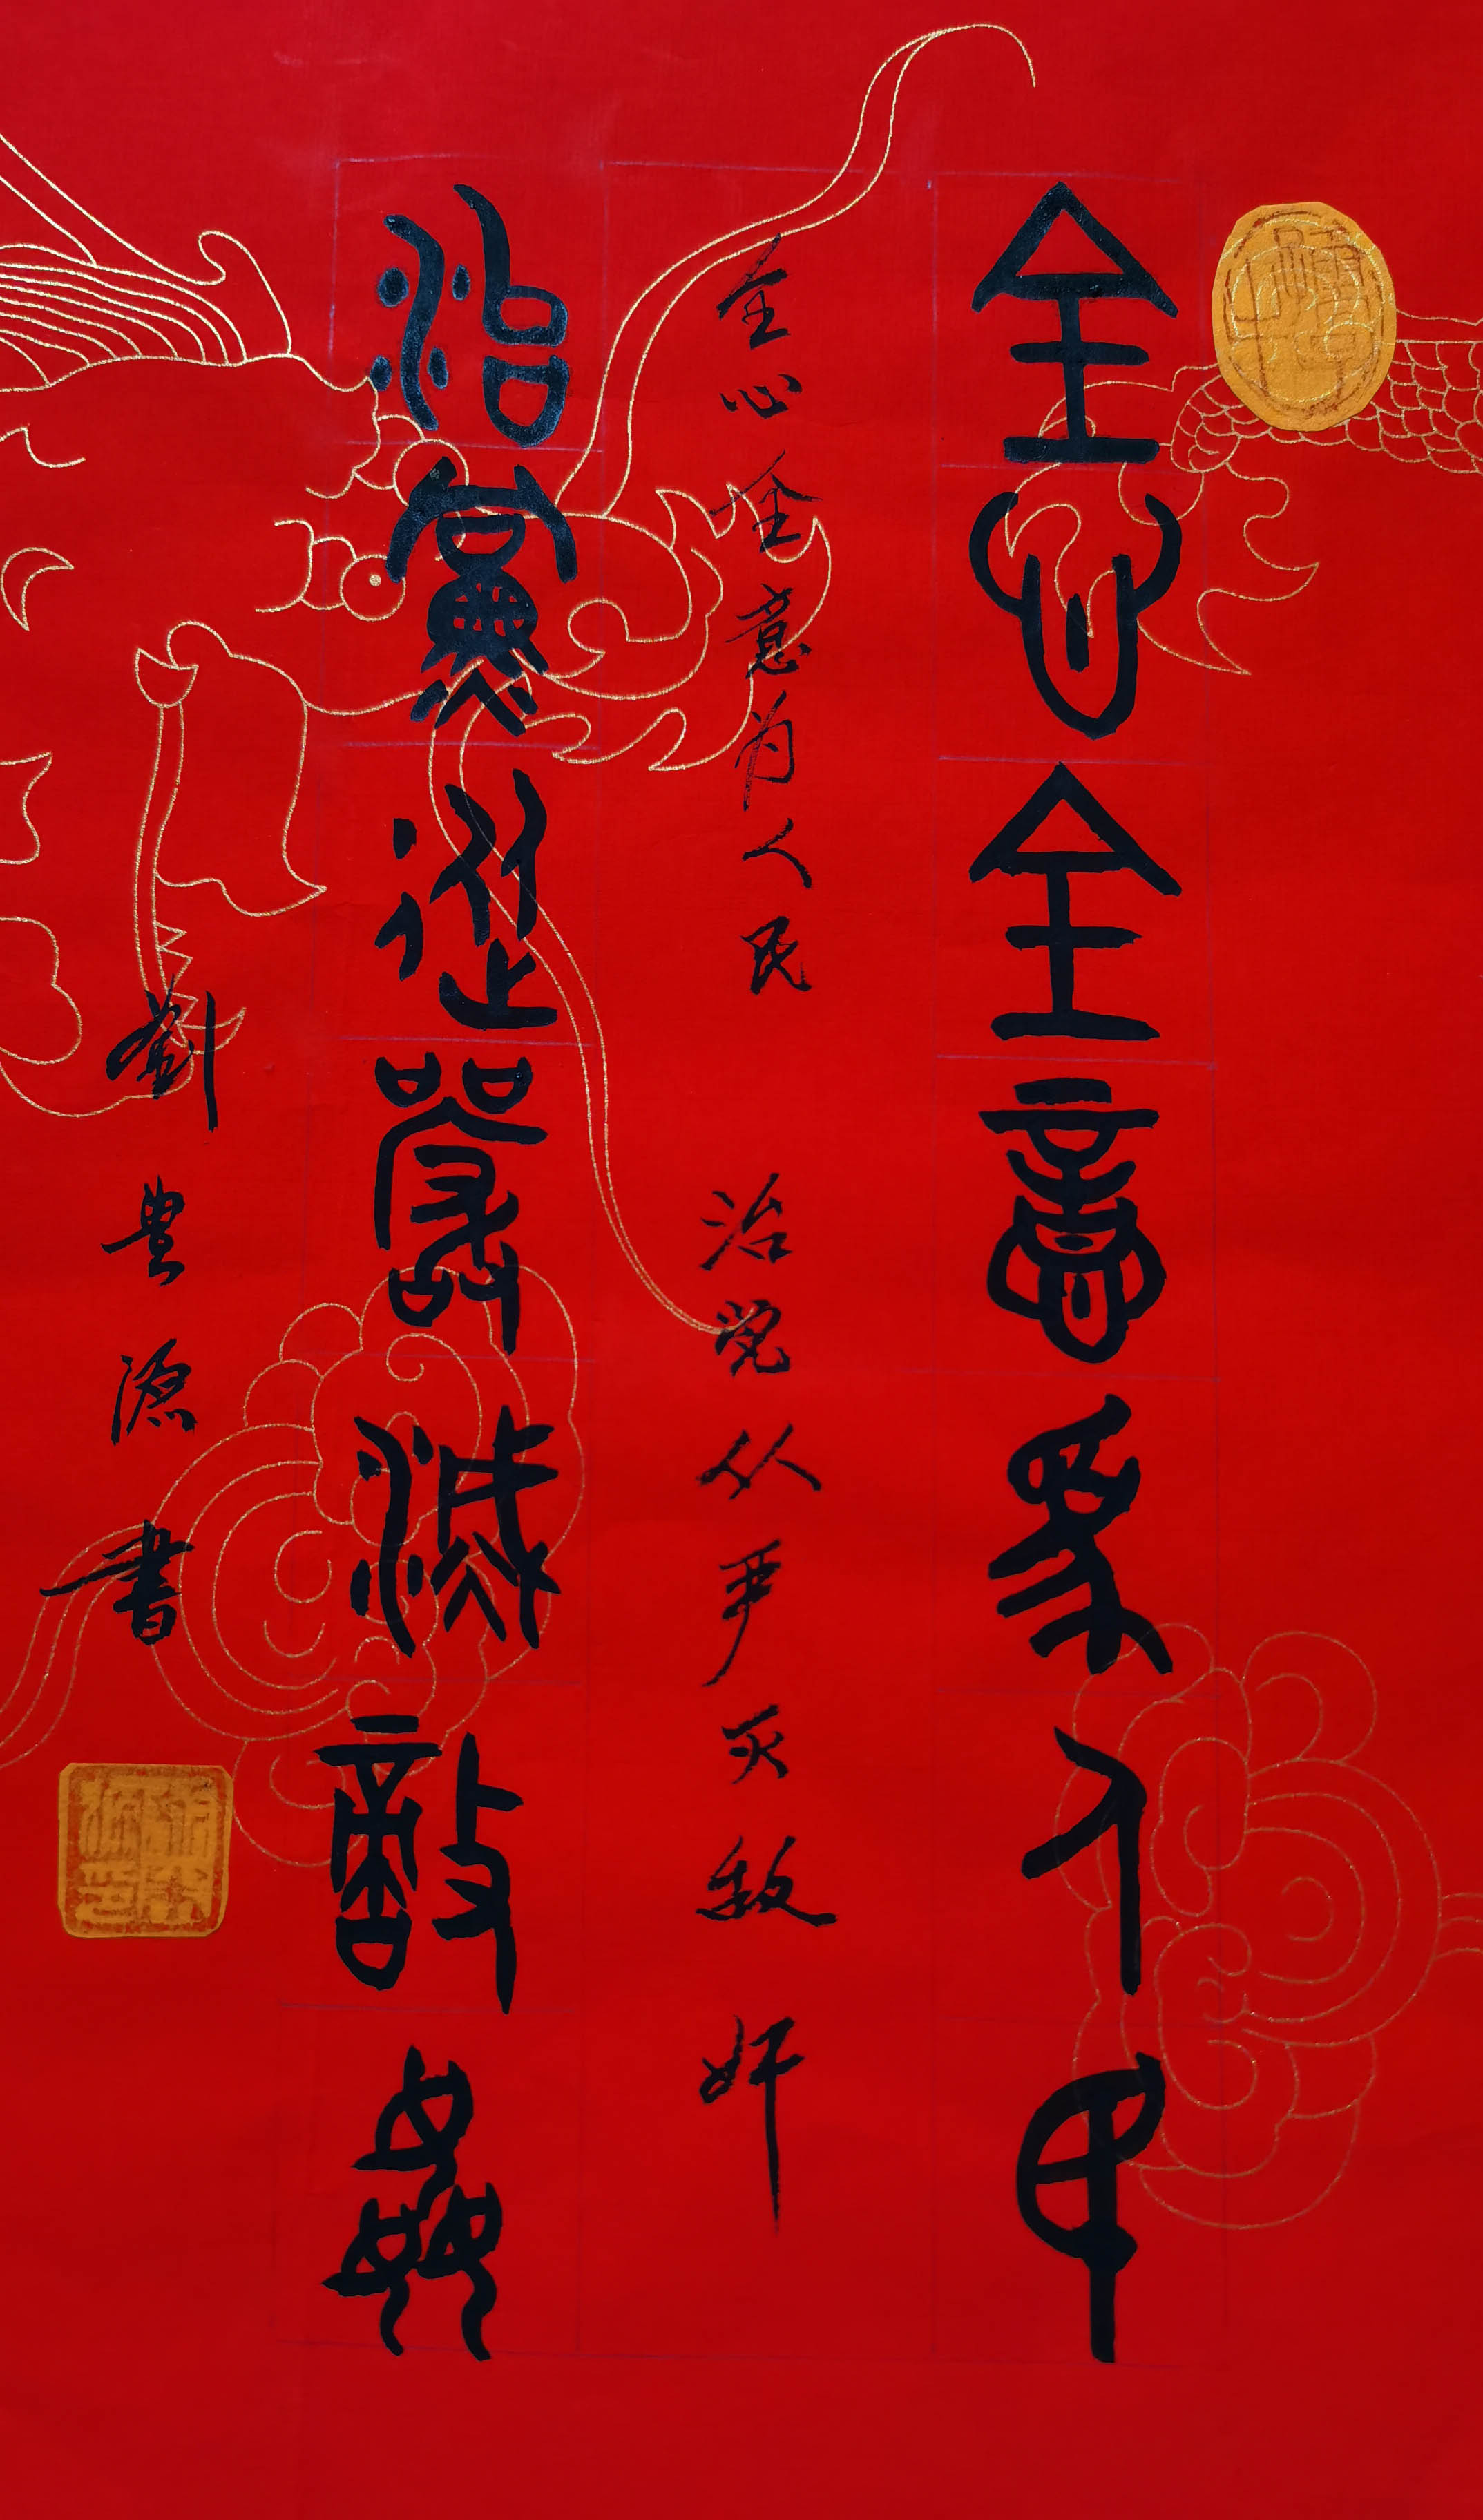 全心全意為人民
全心全意为人民 治党从严灭敌奸
治黨從嚴滅敵姦
劉豊源書